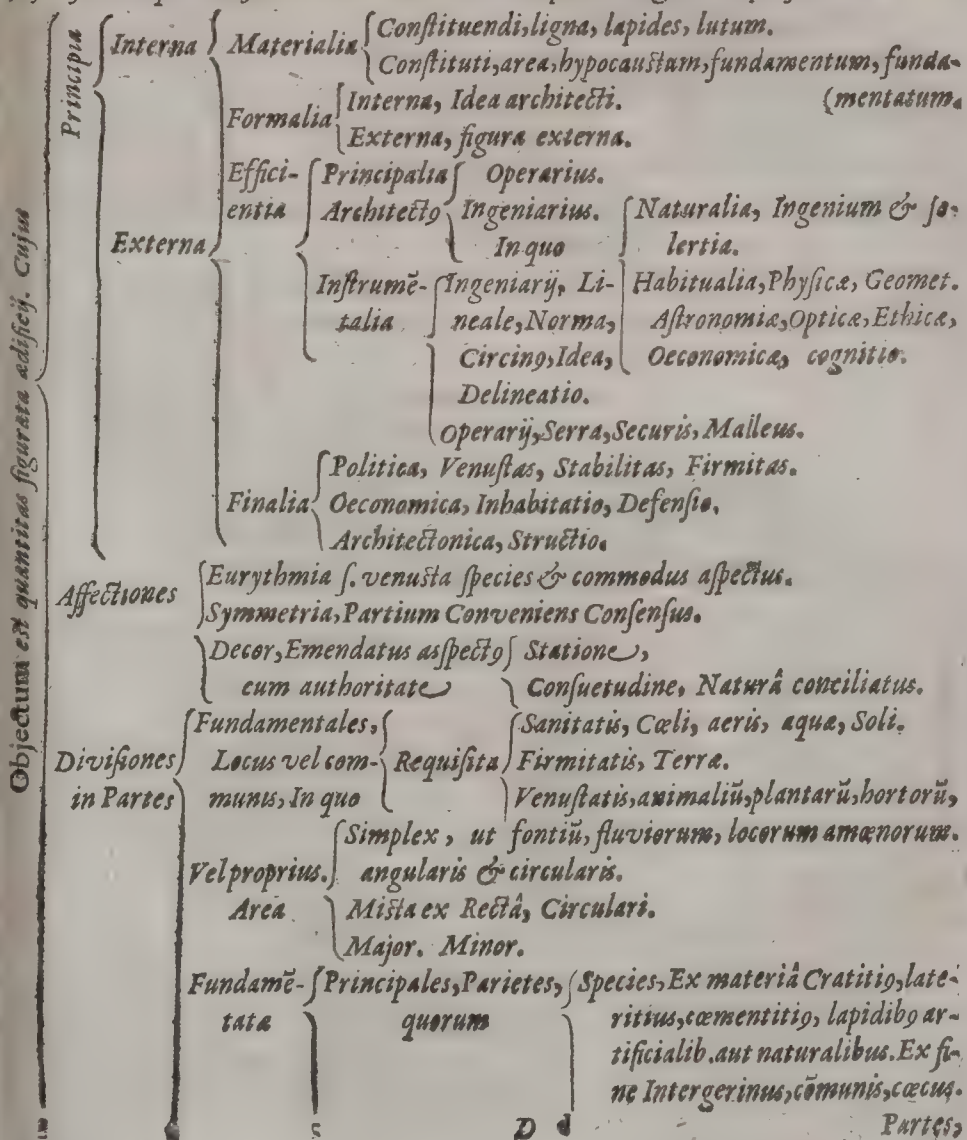 Objectum est quantitas figurata ædificij. Cujus
Principia
Interna
Materialia
Constituendi, ligna, lapides, lutum.
Constituti, area, hypocaustam, fundamentum, funda-
(mentatum.
Formalia
Interna, Idea architecti.
Externa, figura externa.
Externa
Effici-
entia
Principalia
Architectꝰ
Operarius.
Ingeniarius.
In quo
Naturalia, Ingenium & so-
lertia.
Habitualia, Physicæ, Geomet.
Astronomiæ, Opticæ, Ethicæ,
Oeconomicæ, cognitio.
Instrumē-
talia
Ingeniarij, Li-
neale, Norma,
Circinꝰ, Idea,
Delineatio.
Operarij, Serra, Securis, Malleus.
Finalia
Politica, Venustas, Stabilitas, Firmitas.
Oeconomica, Inhabitatio, Defensio.
Architectonica, Structio.
Affectiones
Eurythmia s. venusta species & commodus aspectus.
Symmetria, Partium Conveniens Consensus.
Decor, Emendatus asspectꝰ
cum authoritate
Statione,
Consuetudine, Naturâ conciliatus.
Divisiones
in Partes
Fundamentales,
Locus vel com-
munis, In quo
Requisita
Sanitatis, Cœli, aeris, aquæ, Soli.
Firmitatis, Terræ.
Venustatis, animaliū, plantarū, hortorū,
Vel proprius.
Area
Simplex, ut fontiū, fluviorum, locorum amœnorum.
angularis & circularis.
Mista ex Rectâ, Circulari.
Major. Minor.
Fundamē-
tata
Principales, Parietes,
quorum
Species, Ex materiâ Cratitiꝰ, late-
ritius, cœmentitiꝰ, lapidibꝰ ar-
tificialib. aut naturalibus. Ex fi-
ne Intergerinus, cōmunis, cœcus.
D
Partes,